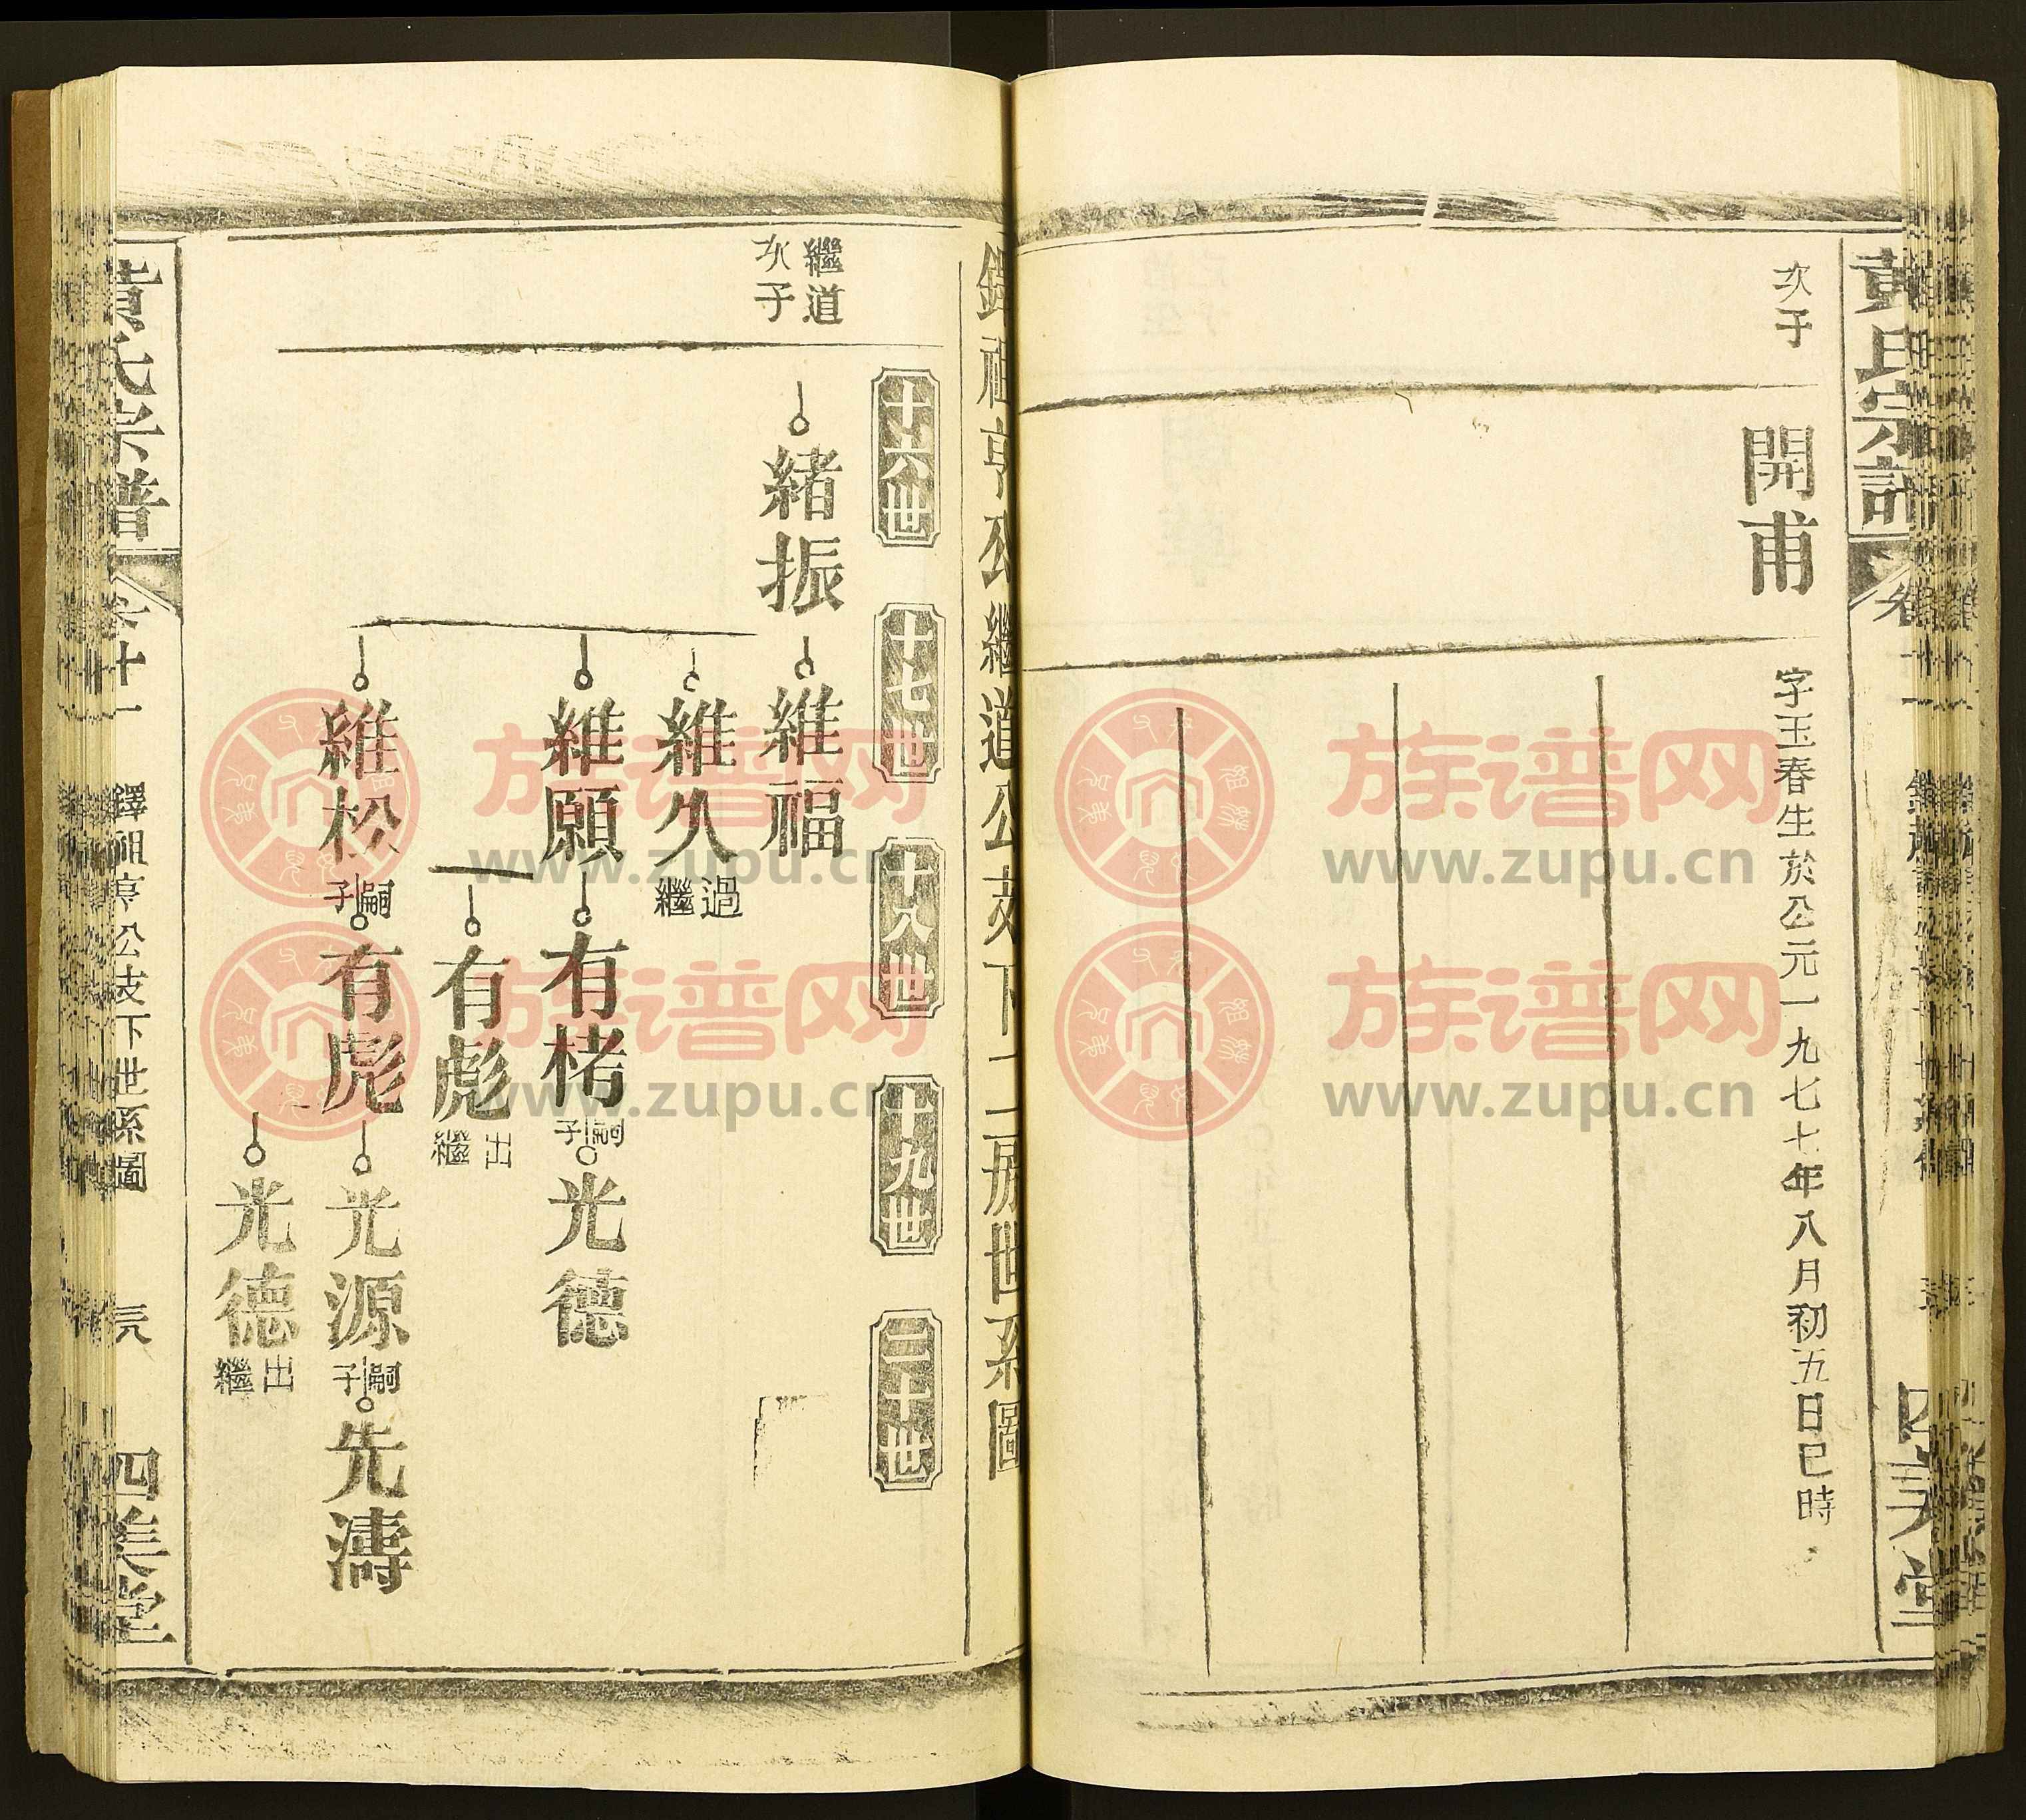 黄氏宗譜
卷十一
四美堂
次子
開甫
字玉春生於公元一九七七年八月初五日巳時
鐸祖亨公繼道公支下二房世系圖
繼道
次子
十六世
十七世
十八世
十九世
二十世
緒振
維福
維久
過
繼
維願
有栲
嗣子
光德
有彪
出
繼
維松
嗣子
有彪
光源
嗣子
先濤
光德
出
繼
黄氏宗譜
卷十一
鐸祖亨公支下世系圖
四美堂
族谱网
www.zupu.cn
族谱网
www.zupu.cn
族谱网
www.zupu.cn
族谱网
www.zupu.cn